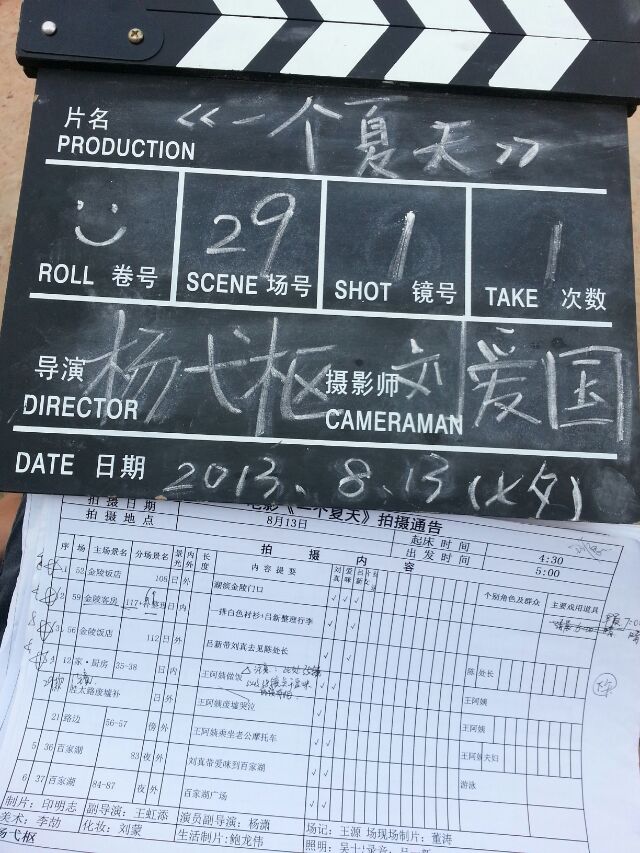 片名 《一个夏天》
PRODUCTION
29 1 1
ROLL 卷号 SCENE 场号 SHOT 镜号 TAKE 次数
导演 杨弋枢 摄影师 刘爱国
DIRECTOR CAMERAMAN
DATE 日期 2013.8.13(七夕)
电影《一个夏天》拍摄通告
拍摄日期 8月13日 起床时间 4:30
拍摄地点 出发时间 5:00
拍摄内容
序 场 主场景名 分场景名 景光 内外 长度 内容提要 刘真 爱味 吕新 个别角色及群众 主要戏用道具
1 52 金陵饭店 105 日 外 湖滨金陵门口
2 59 金陵客房 117+补整理 日 内 一拣白色衬衫+吕新整理行李
3 56 金陵饭店 112 日 外 吕新带刘真去见陈处长 陈处长
4 12 家·厨房 35-38 日 内 王阿姨做饭 王阿姨
胜太路废墟补 日 外 王阿姨废墟哭泣 王阿姨
21 路边 56-57 傍 外 王阿姨乘坐老公摩托车 王阿姨夫妇
5 36 百家湖 83 夜 外 刘真带爱味到百家湖 游泳
6 37 百家湖 84-87 夜 外 百家湖广场
制片：印明志 副导演：王虹添 演员副导演：杨潇 场记：王源 场现场制片：董涛
美术：李勍 化妆：刘蒙 生活制片：鲍龙伟
杨弋枢